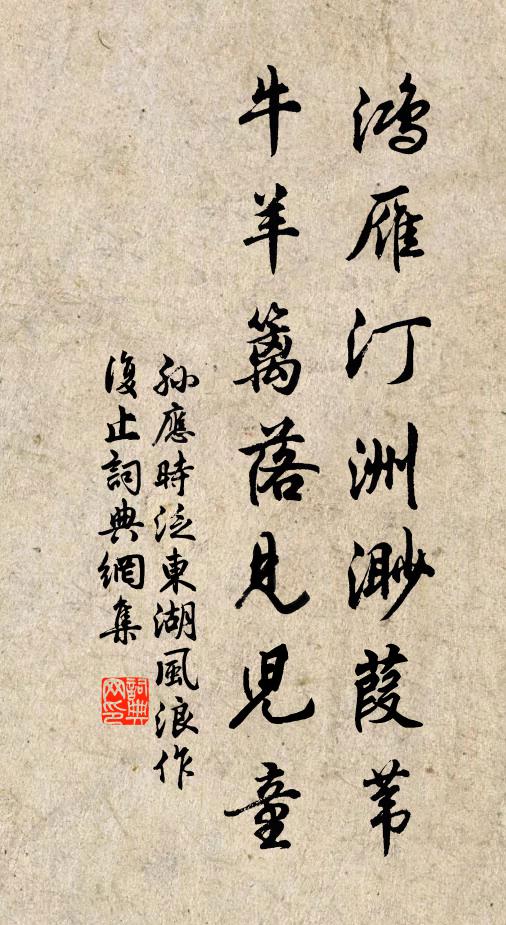 鴻雁汀洲渺葭葦
牛羊籬落見兒童
孫應時泛東湖風浪作
復止詞典網集
詞典網印